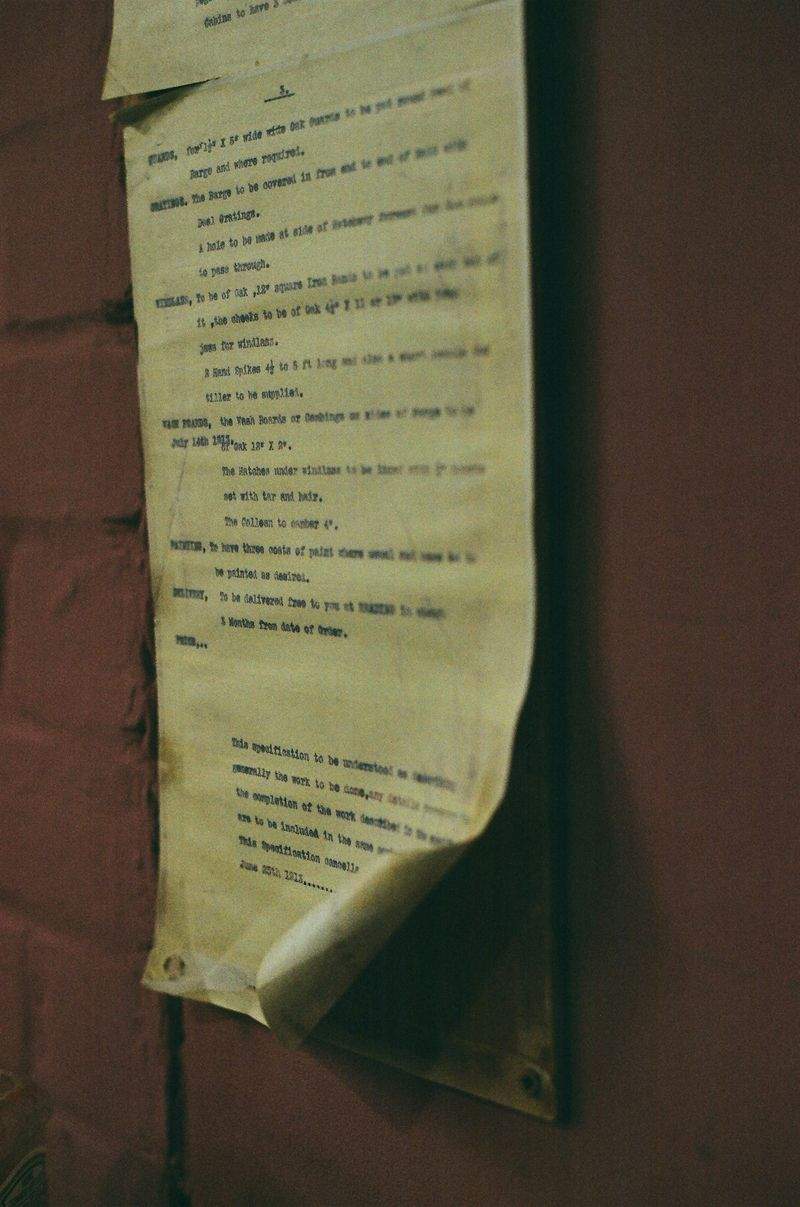 Cabins to have 3
3.
GUARDS, for 1½" X 5" wide wide Oak Guards to be put round
Barge and where required.
GRATINGS. The Barge to be covered in from end to end of
Deal Gratings.
A hole to be made at side of Hatchway forward for
to pass through.
WINDLASS, To be of Oak ,12" square Iron Bands to be put at each end of
it ,the cheeks to be of Oak 4½" X 11 or 12" with
jaws for windlass.
2 Hand Spikes 4½ to 5 ft long and also a
tiller to be supplied.
WASH BOARDS, the Wash Boards or Combings on sides of Barge to be
July 14th 1913.
of Oak 12" X 2".
The Hatches under windlass to be lined with
set with tar and hair.
The Collean to camber 4".
PAINTING, To have three coats of paint where usual and name to
be painted as desired.
DELIVERY, To be delivered free to you at READING in about
3 Months from date of Order.
PRICE,..
This specification to be understood as describing
generally the work to be done,any details
the completion of the work described
are to be included in the same
This Specification cancells
June 25th 1913.......